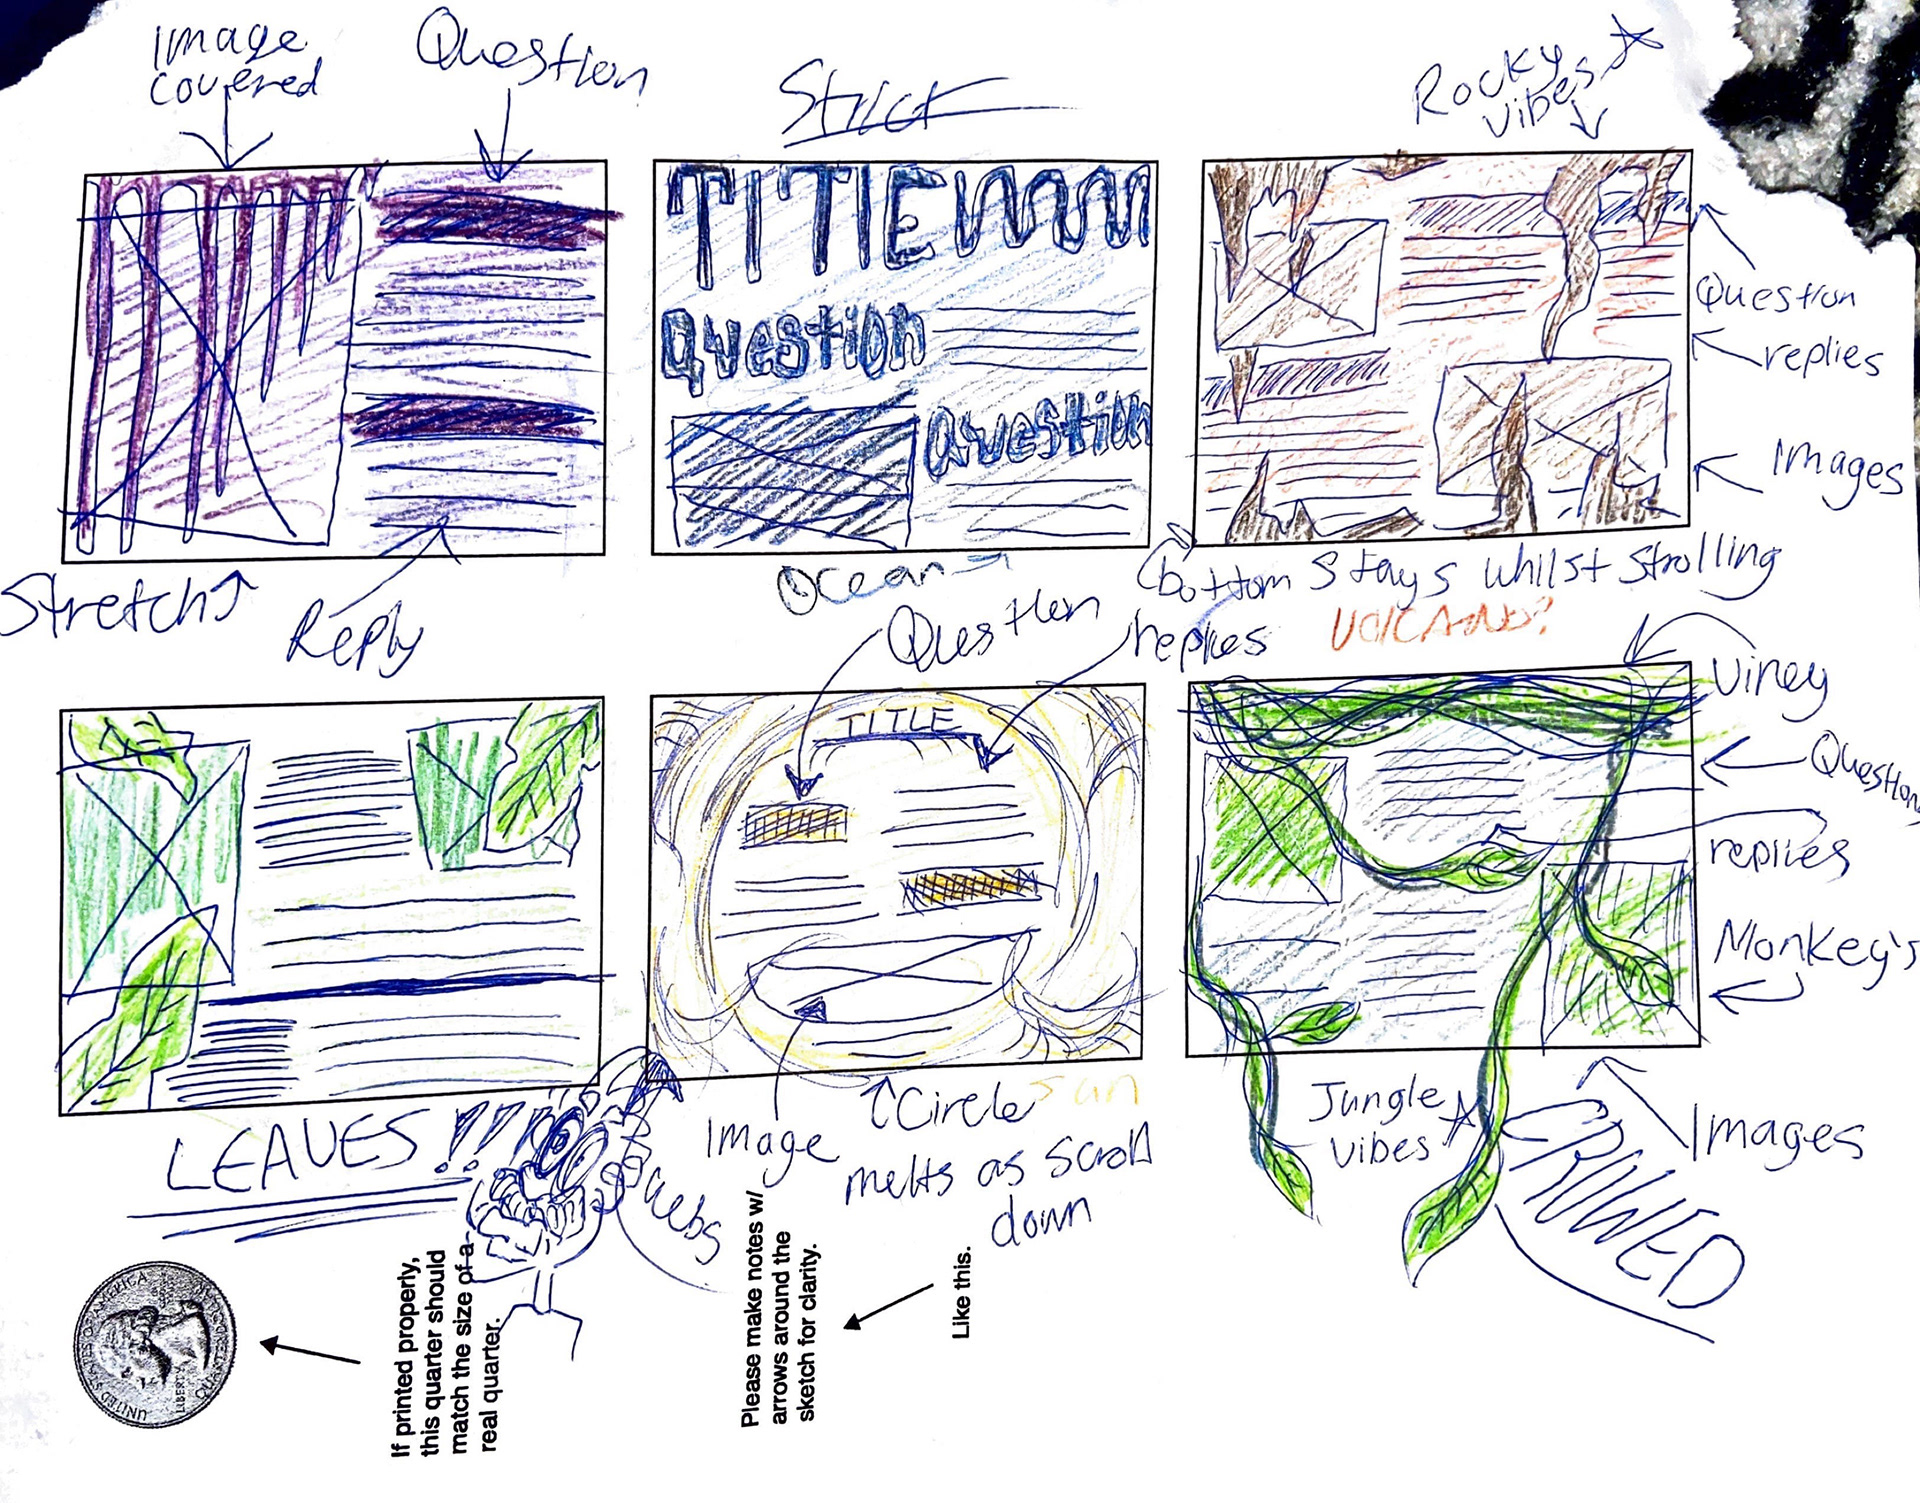 Image
covered
Question
Strict
Rocky
vibes
TITLE
Question
Question
Question
replies
Images
Stretch
Reply
Ocean
bottom stays whilst strolling
VOlCANO?
Question
replies
Viney
Question
replies
Monkey's
Images
TITLE
LEAVES !!
Image
Circle sun
melts as scroll
down
Jungle
vibes
CROWED
UNITED STATES OF AMERICA
LIBERTY
QUARTER DOLLAR
If printed properly,
this quarter should
match the size of a
real quarter.
Please make notes w/
arrows around the
sketch for clarity.
Like this.